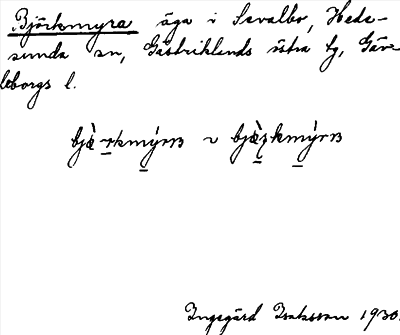 Björkmyra äga i Sevalbo, Hede-
sunda sn, Gästriklands östra tg, Gäv-
leborgs l.
bjæ̀rkmýrɐ ~ bjæ̀ʂkmýrɐ
Ingegärd Isaksson 1930.